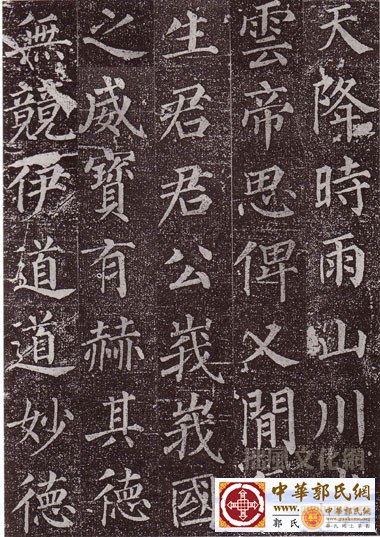 天降時雨山川
雲帝思俾乂閒
生君君公峩峩國
之威寶有赫其徳
無競伊道道妙徳
文化網
中華郭氏網
www.
郭氏